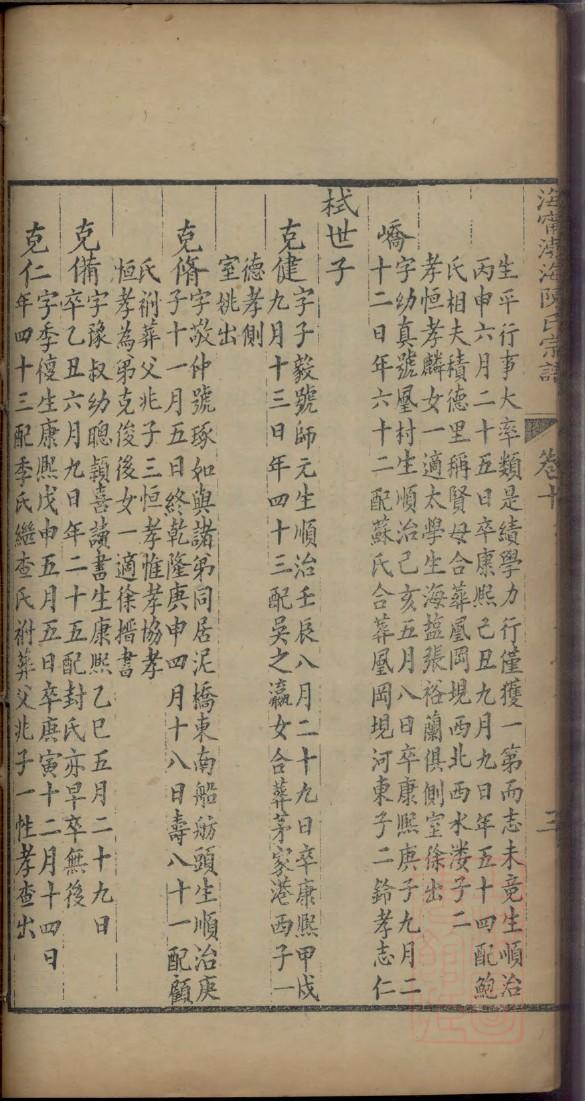 海寧渤海陳氏宗譜
卷十
生平行事大率類是績學力行僅獲一第而志未竟生順治
丙申六月二十五日卒康熙己丑九月九日年五十四配鮑
氏相夫積德里稱賢母合葬凰岡垷西北西水溇子二
孝恒孝麟女一適太學生海盐張裕蘭俱側室徐出
嶠字幼真號壓村生順治己亥五月八日卒康熙庚子九月二
十二日年六十二配蘇氏合葬凰岡垷河東子二鈴孝志仁
栻世子
克健字子毅號師元生順治壬辰八月二十九日卒康熙甲戌
九月十三日年四十三配吳之瀛女合葬茅家港西子一
德孝側
室姚出
克脩字敬仲號琢如與諸弟同居泥橋東南船舫頭生順治庚
子十一月五日終乾隆庚申四月十八日壽八十一配顧
氏祔葬父兆子三恒孝惟孝協孝
恒孝為弟克俊後女一適徐搢書
克備字豫叔幼聰穎喜讀書生康熙乙巳五月二十九日
卒乙丑六月九日年二十五配封氏亦早卒無後
克仁字季優生康熙戊申五月五日卒庚寅十二月十四日
年四十三配季氏繼查氏祔葬父兆子一性孝查出